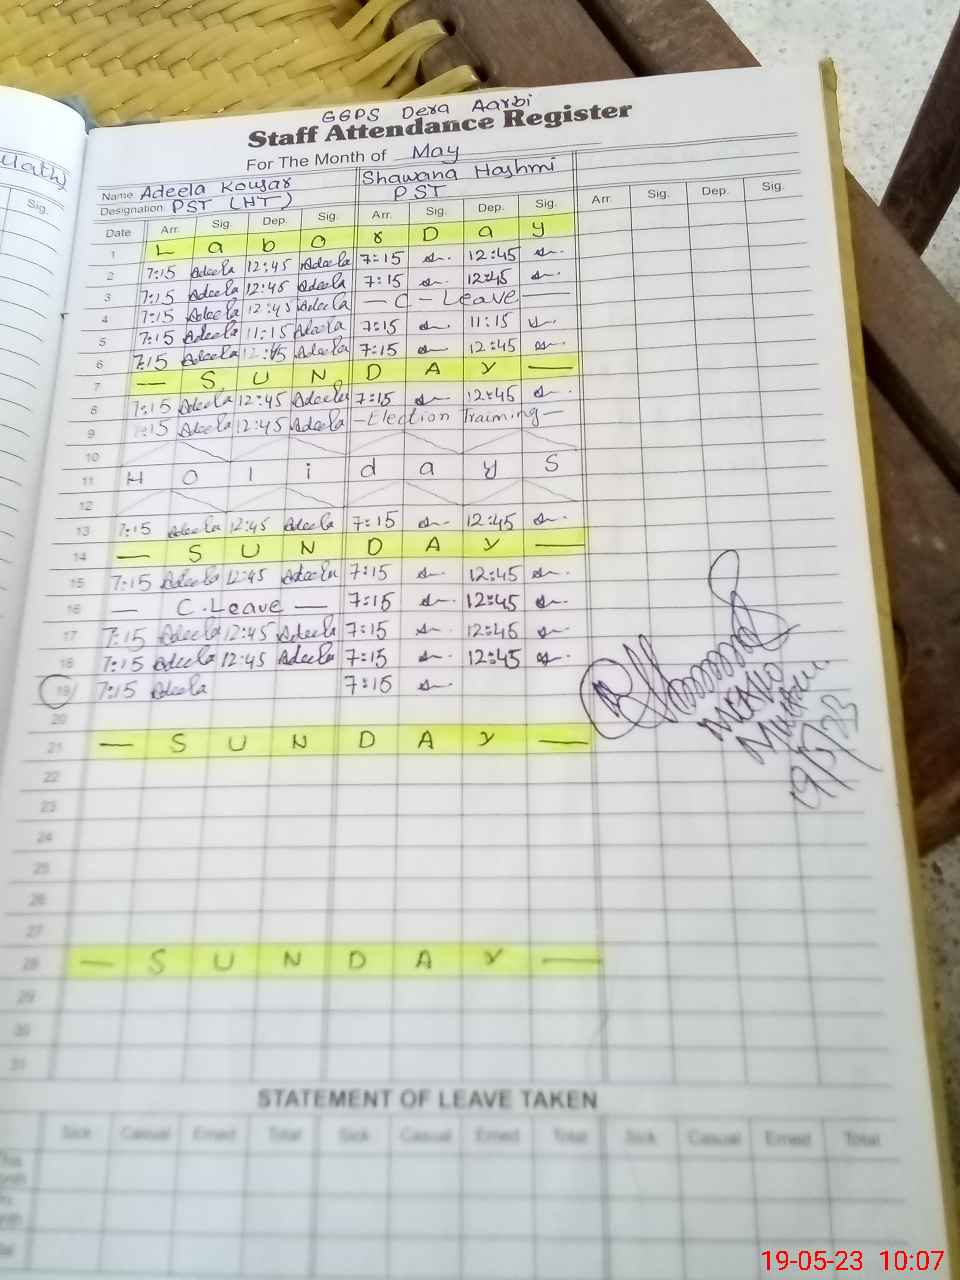 Math)
Sig.
GGPS Dera Aarbi
Staff Attendance Register
For The Month of May
Name Adeela Kousar Shawana Hashmi
Designation PST (HT) PST
Date Arr. Sig. Dep. Sig. Arr. Sig. Dep. Sig. Arr. Sig. Dep. Sig.
1 L a b o r D a y
2 7:15 Adeela 12:45 Adeela 7:15 12:45
3 7:15 Adeela 12:45 Adeela 7:15 12:45
4 7:15 Adeela 12:45 Adeela — C - Leave —
5 7:15 Adeela 11:15 Adeela 7:15 11:15
6 7:15 Adeela 12:45 Adeela 7:15 12:45
7 — S U N D A Y —
8 7:15 Adeela 12:45 Adeela 7:15 12:45
9 7:15 Adeela 12:45 Adeela — Election Training —
10
11 H o l i d a y s
12
13 7:15 Adeela 12:45 Adeela 7:15 12:45
14 — S U N D A Y —
15 7:15 Adeela 12:45 Adeela 7:15 12:45
16 — C.Leave — 7:15 12:45
17 7:15 Adeela 12:45 Adeela 7:15 12:45
18 7:15 Adeela 12:45 Adeela 7:15 12:45
19 7:15 Adeela 7:15
20
21 — S U N D A Y —
22
23
24
25
26
27
28 — S U N D A Y —
29
30
31
19/5/23
STATEMENT OF LEAVE TAKEN
Sick Casual Erned Total Sick Casual Erned Total Sick Casual Erned Total
19-05-23 10:07